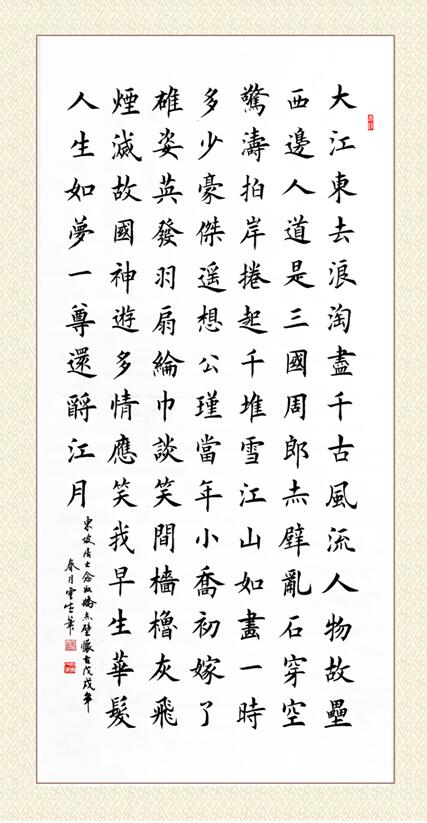 大江東去浪淘盡千古風流人物故壘
西邊人道是三國周郎赤壁亂石穿空
驚濤拍岸捲起千堆雪江山如畫一時
多少豪傑遥想公瑾當年小喬初嫁了
雄姿英發羽扇綸巾談笑間檣櫓灰飛
煙滅故國神遊多情應笑我早生華髮
人生如夢一尊還酹江月
東坡居士念奴嬌赤壁懷古戊戌年
春月